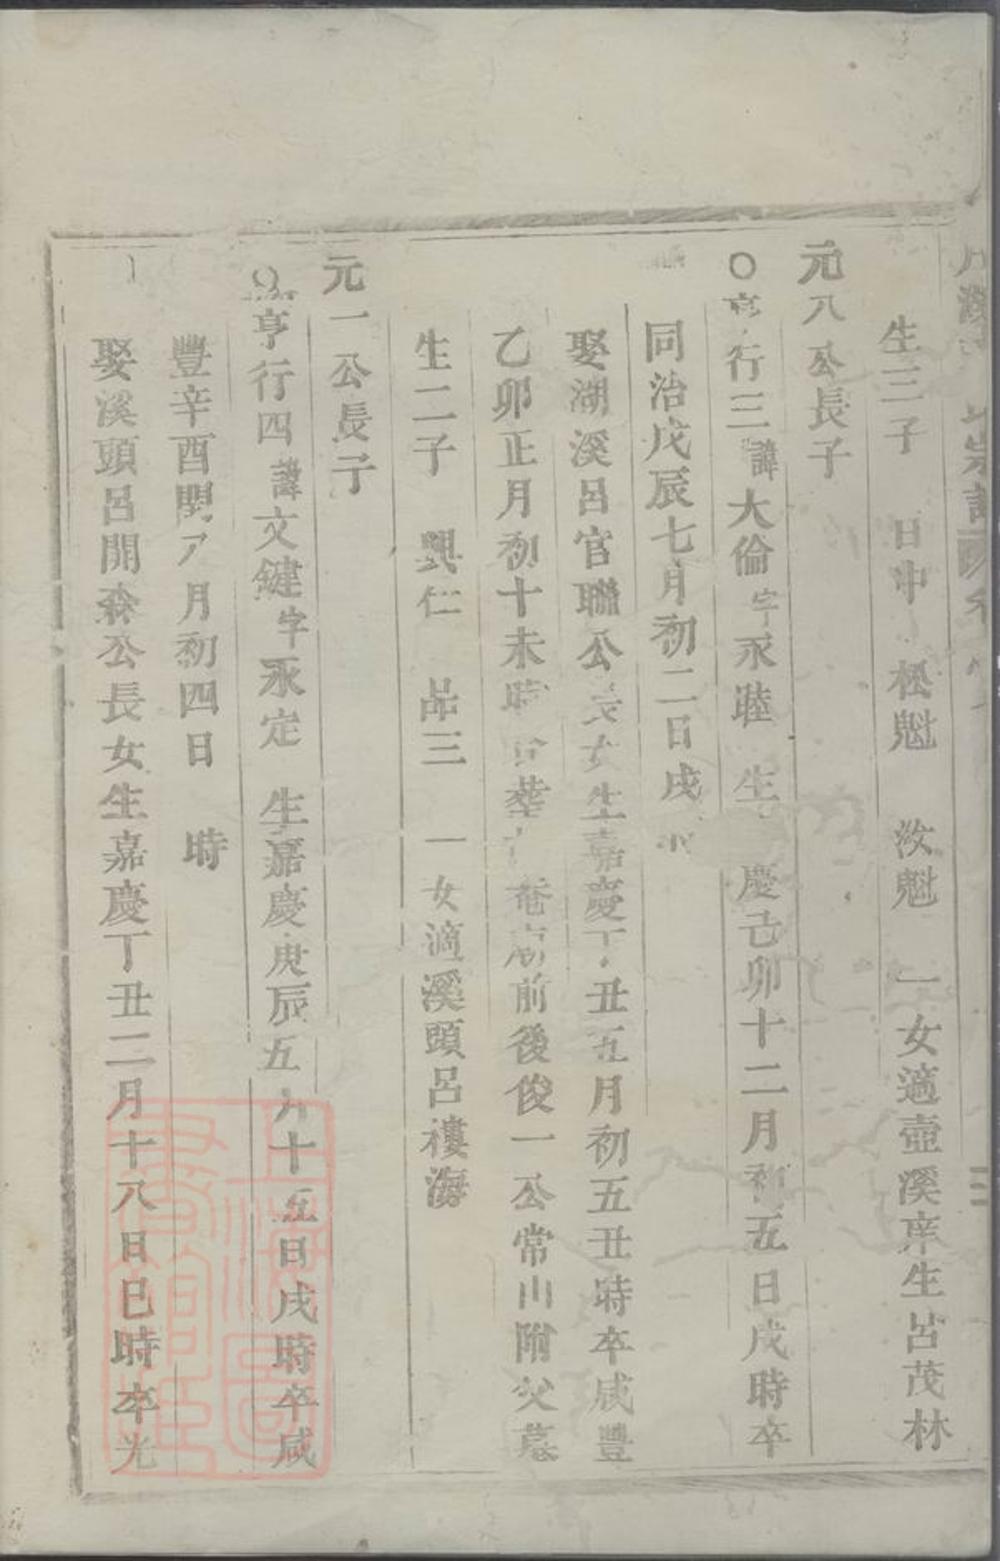 宗譜
生三子 日中 松魁 汝魁 一女適壺溪庠生呂茂林
元八公長子
○亨行三諱大倫字永睦 生 慶己卯十二月初五日戌時卒
同治戊辰七月初二日戌
娶湖溪呂官聯公長女生嘉慶丁丑五月初五丑時卒咸豐
乙卯正月初十未時 葬 庵 前後俊一公常山附父墓
生二子 興仁 品三 一女適溪頭呂樓海
元一公長子
○亨行四諱文鍵字永定 生嘉慶庚辰五月十五日戌時卒咸
豐辛酉閏八月初四日 時
娶溪頭呂開森公長女生嘉慶丁丑二月十八日巳時卒光
上海圖書館藏